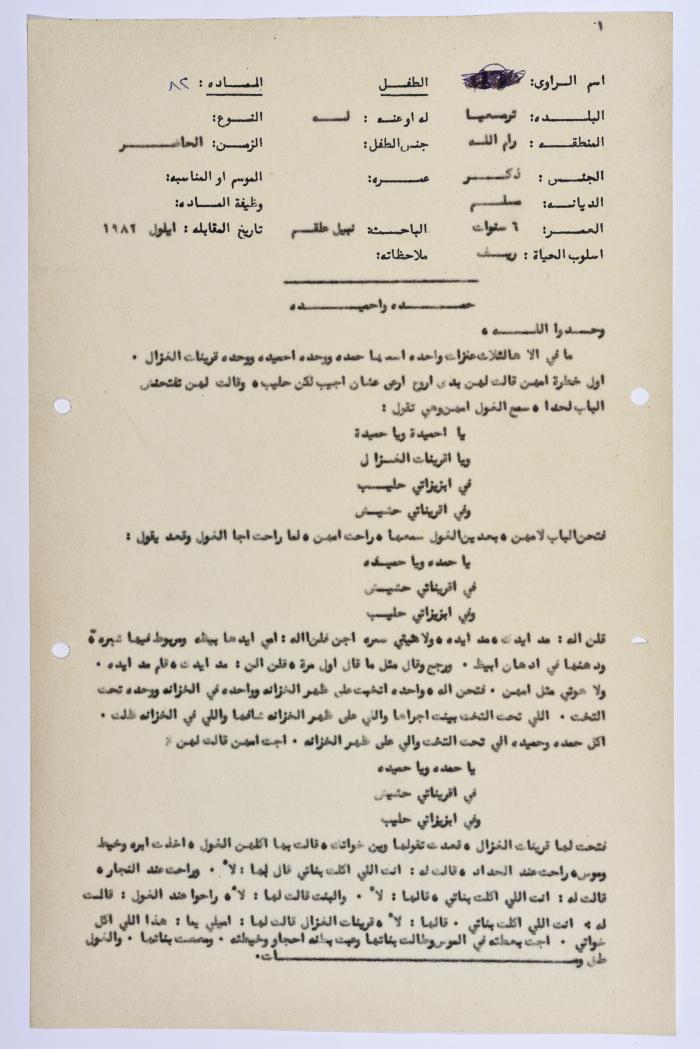 ١
اسم الراوى: الطفل المـاده : ٨٢
البلـده: ترمعيا له او عنه : لـه النوع:
المنطقه : رام الله جنس الطفل: الزمن: الحاضر
الجنس : ذكر عمره: الموسم او المناسبه:
الديانه: مسلم وظيفة الماده:
العمر: ٦ سنوات الباحث: نبيل علقم تاريخ المقابله : ايلول ١٩٨٢
اسلوب الحياة : ريف ملاحظاته:
حمده واحميده
وحدوا الله ٠
ما في الا هالثلاث عنزات واحده اسمها حمده ووحده احميده ووحده قرينات الغزال ٠
اول خطرة امهن قالت لهن بدى اروح ارعى عشان اجيب لكن حليب٠ وقالت لهن تفتحنش
الباب لحدا ٠ سمع الغول امهن وهي تقول :
يا احميدة ويا حميدة
ويا اقرينات الغزال
في ابزيزاتي حليب
وفي اقريناتي حشيش
فتحن الباب لامهن ٠ بعدين الغول سمعها ٠ راحت امهن ٠ لما راحت اجا الغول وقعد يقول :
يا حمده ويا حميده
في اقريناتي حشيش
وفي ابزيزاتي حليب
قلن اله : مد ايدك ٠ مد ايده ٠ ولا هيتي سمره اجن قلن اله : امي ايدها بيظه ومربوط فيها شبرة
ودهنها في ادهان ابيظ ٠ ورجع وقال مثل ما قال اول مرة ٠ قلن الن : مد ايدك ٠ قام مد ايده ٠
ولا هوتي مثل امهن ٠ فتحن اله ٠ واحده اتخبت على ظهر الخزانه وواحده في الخزانه ووحده تحت
التخت ٠ اللي تحت التخت بينت اجراها واللي على ظهر الخزانه شافها واللي في الخزانه ظلت ٠
اكل حمده وحميده الي تحت التخت والي على ظهر الخزانه ٠ اجت امهن قالت لهن :
يا حمده ويا حميده
في اقريناتي حشيش
وفي ابزيزاتي حليب
فتحت لها قرينات الغزال ٠ قعدت تقولها وين خواتك ٠ قالت بها اكلهن الغول ٠ اخذت ابره وخيط
وموس ٠ راحت عند الحداد ٠ قالت له : انت اللي اكلت بناتي قال لها : لا ٠ وراحت عند النجار ٠
قالت له : انت اللي اكلت بناتي ٠ قالها : لا ٠ والبنت قالت لها : لا ٠ راحوا عند الغول : قالت
له : انت اللي اكلت بناتي ٠ قالها : لا ٠ قرينات الغزال قالت لها : اميلي يما : هذا اللي اكل
خواتي ٠ اجت بعطته في الموس وطالت بناتها وعبت بطنه احجار وخيطته ٠ ومصعت بناتها ٠ والغول
طق ومات٠